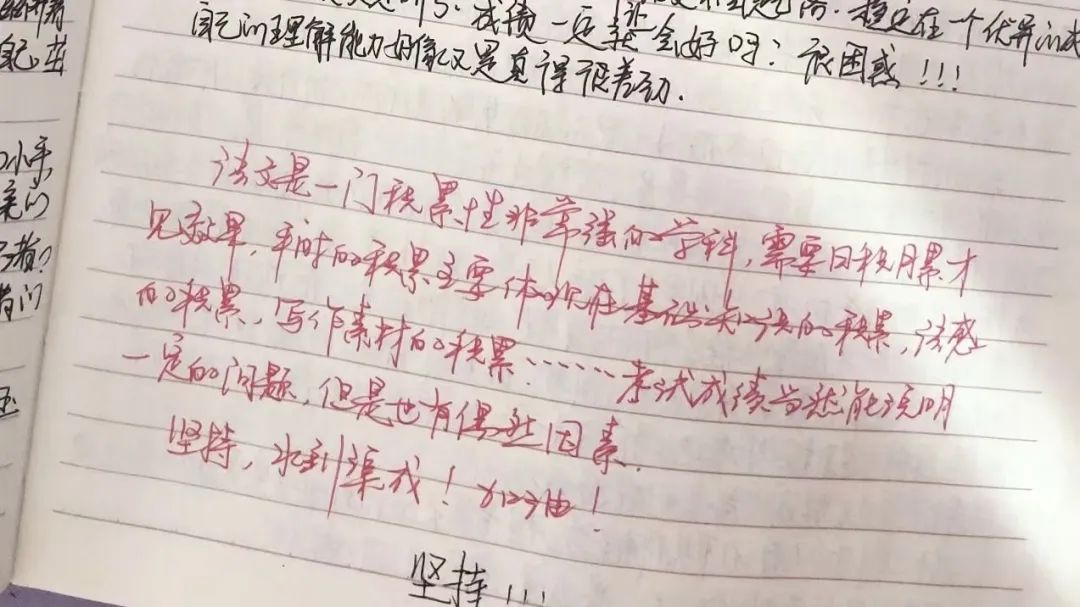 成绩一定就会好吗？很困惑！！！
稳定在一个优异的成
自己的理解能力好像又是真得很差劲．
语文是一门积累性非常强的学科，需要日积月累才
见效果，平时的积累主要体现在基础知识的积累，语感
的积累，写作素材的积累……考试成绩当然能说明
一定的问题，但是也有偶然因素．
坚持，水到渠成！加油！
坚持！！！